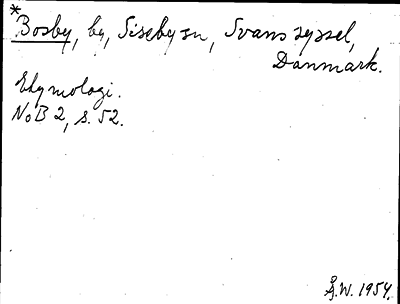 *Bosby, by, Siseby sn, Svanssyssel,
Danmark.
Etymologi.
NoB 2, s. 52.
Å.W. 1954.